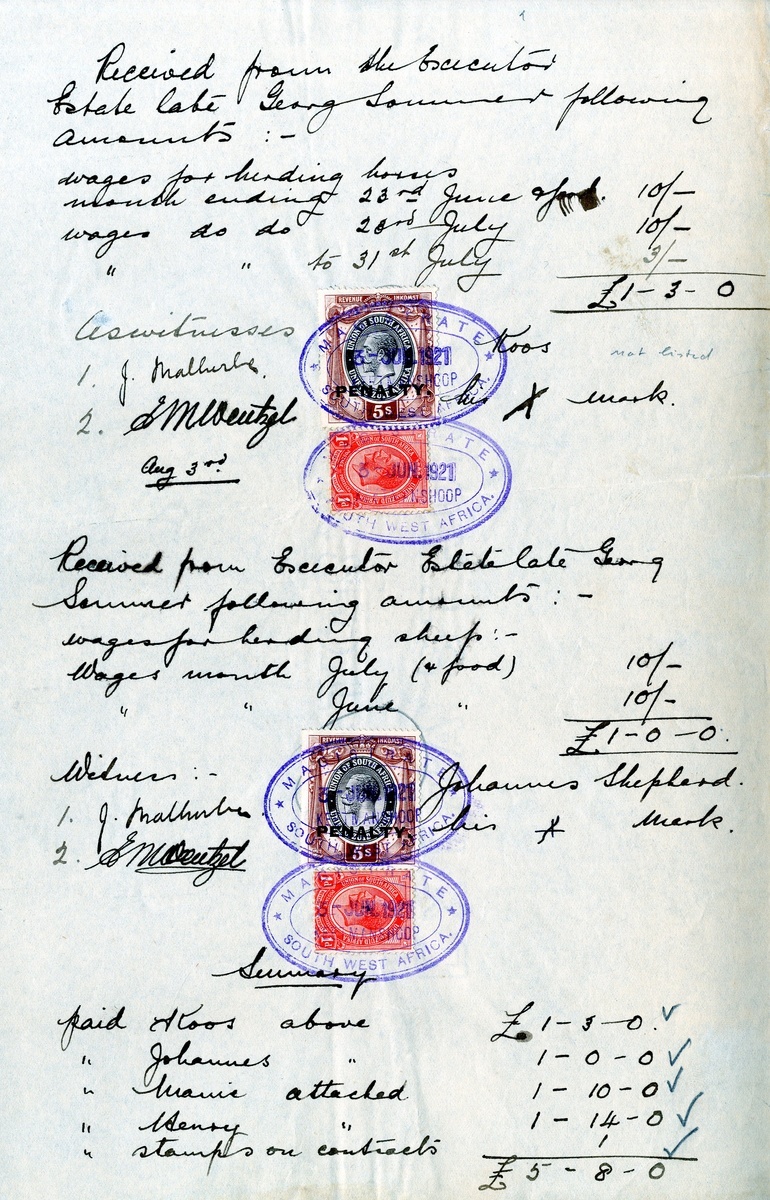 Received from the Executor
Estate late Georg Sommer following
amounts :-
wages for herding horses
month ending 23rd June & food. 10/-
wages do do 23rd July 10/-
" " to 31st July 3/-
£1-3-0
As witnesses
Koos
not listed
1. J. Malherbe.
his X mark.
2. E M Wentzel
Aug 3rd
REVENUE INKOMST
UNION OF SOUTH AFRICA
PENALTY.
5s
MAGISTRATE
3 - JUN. 1921
SOUTH WEST AFRICA.
UNION OF SOUTH AFRICA
1d 1d
MAGISTRATE
3 - JUN. 1921
SOUTH WEST AFRICA.
Received from Executor Estate late Georg
Sommer following amounts :-
wages for herding sheep :-
Wages month July (& food) 10/-
" " June " 10/-
£1-0-0.
Witness :-
Johannes Shepherd.
1. J. Malherbe
his X mark.
2. E M Wentzel
REVENUE INKOMST
UNION OF SOUTH AFRICA
PENALTY.
5s
MAGISTRATE
3 - JUN. 1921
SOUTH WEST AFRICA.
1d 1d
MAGISTRATE
3 - JUN. 1921
SOUTH WEST AFRICA.
Summary
paid Koos above £1-3-0.
" Johannes " 1-0-0
" attached 1-10-0
" Henry " 1-14-0
" stamps on contracts 1
£5-8-0